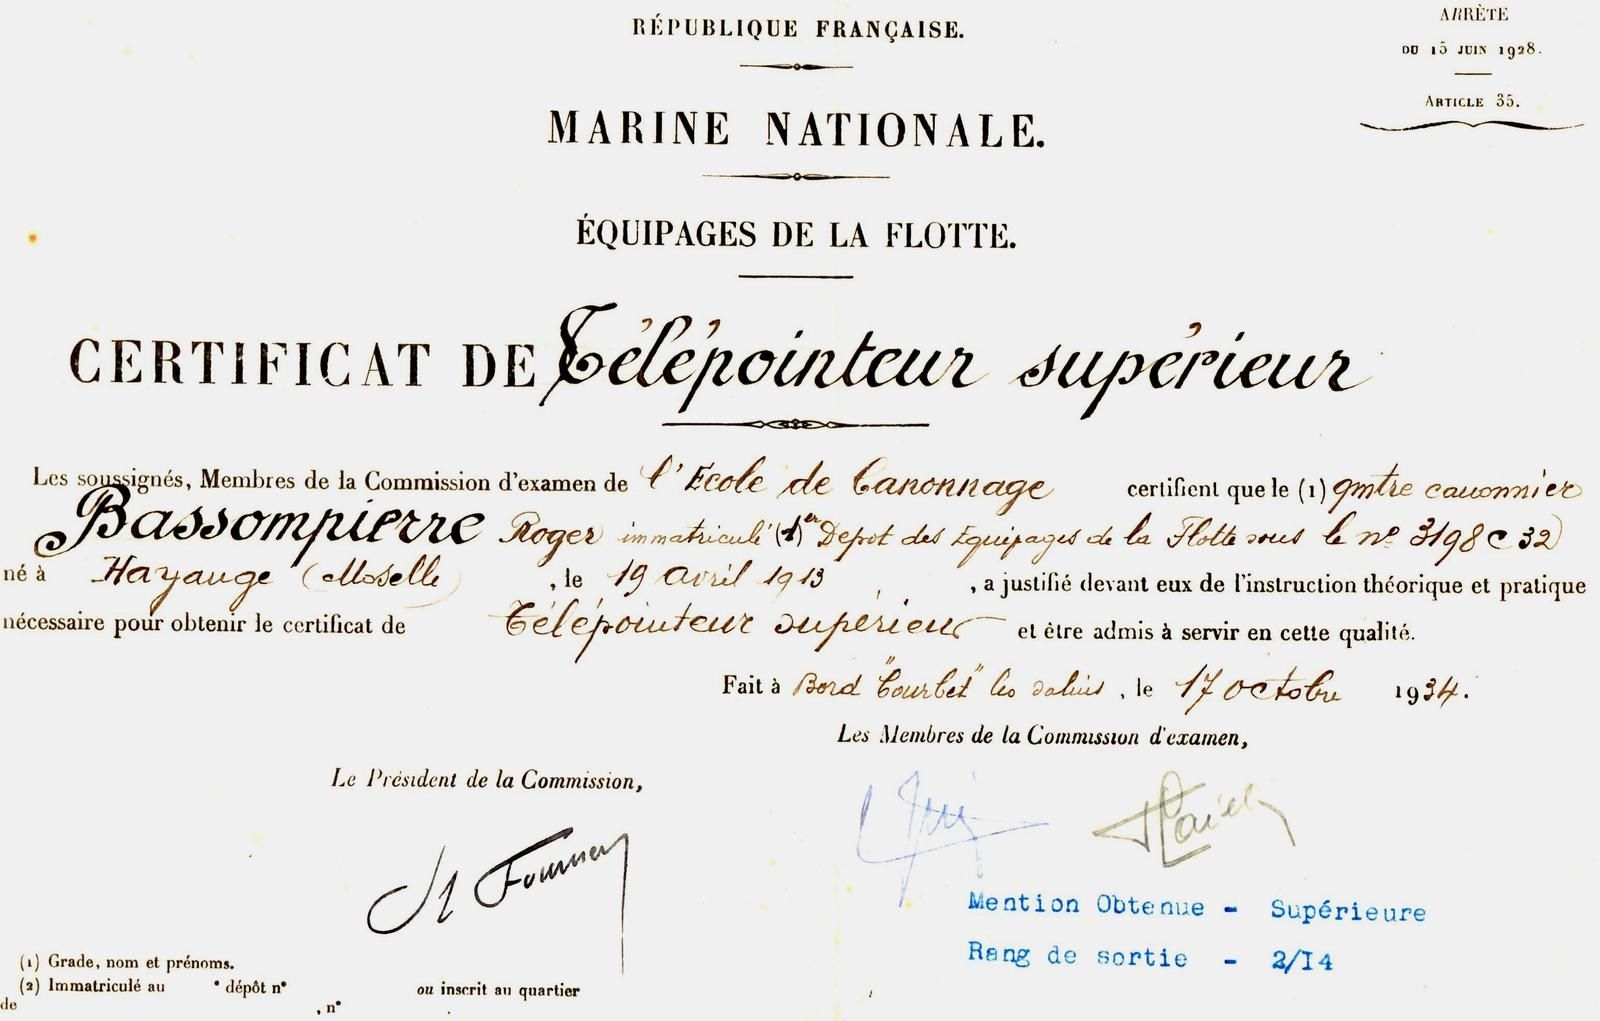 RÉPUBLIQUE FRANÇAISE.
ARRÊTE
DU 15 JUIN 1928.
ARTICLE 35.
MARINE NATIONALE.
ÉQUIPAGES DE LA FLOTTE.
CERTIFICAT DE Télépointeur supérieur
Les soussignés, Membres de la Commission d'examen de l'Ecole de Canonnage certifient que le (1) qmtre canonnier
Bassompierre Roger immatriculé (1)er Depot des Equipages de la Flotte sous le nº 3198 C 32
né à Hayange (Moselle) , le 19 avril 1913 , a justifié devant eux de l'instruction théorique et pratique
nécessaire pour obtenir le certificat de Télépointeur supérieur et être admis à servir en cette qualité.
Fait à Bord "Courbet" les salins , le 17 octobre 1934.
Les Membres de la Commission d'examen,
Le Président de la Commission,
Fournier
Mention Obtenue - Supérieure
Rang de sortie - 2/I4
(1) Grade, nom et prénoms.
(2) Immatriculé au ° dépôt n° ou inscrit au quartier
de , n°